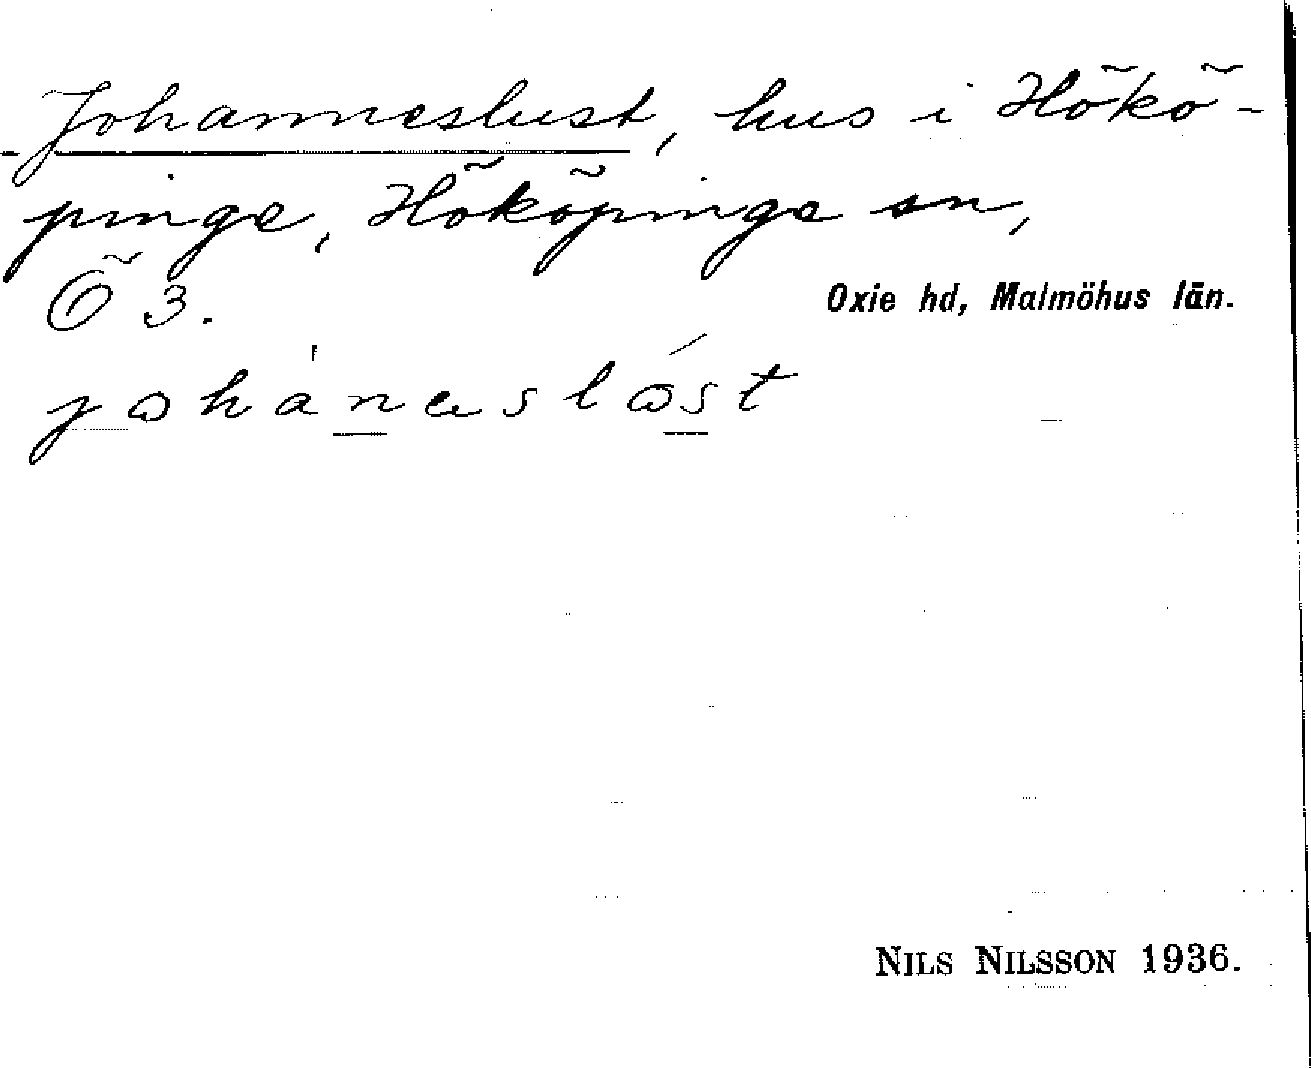 Johanneslust, hus i Hökö-
pinge, Hököpinge sn,
Ö 3.
Oxie hd, Malmöhus län.
johànæslóst
NILS NILSSON 1936.